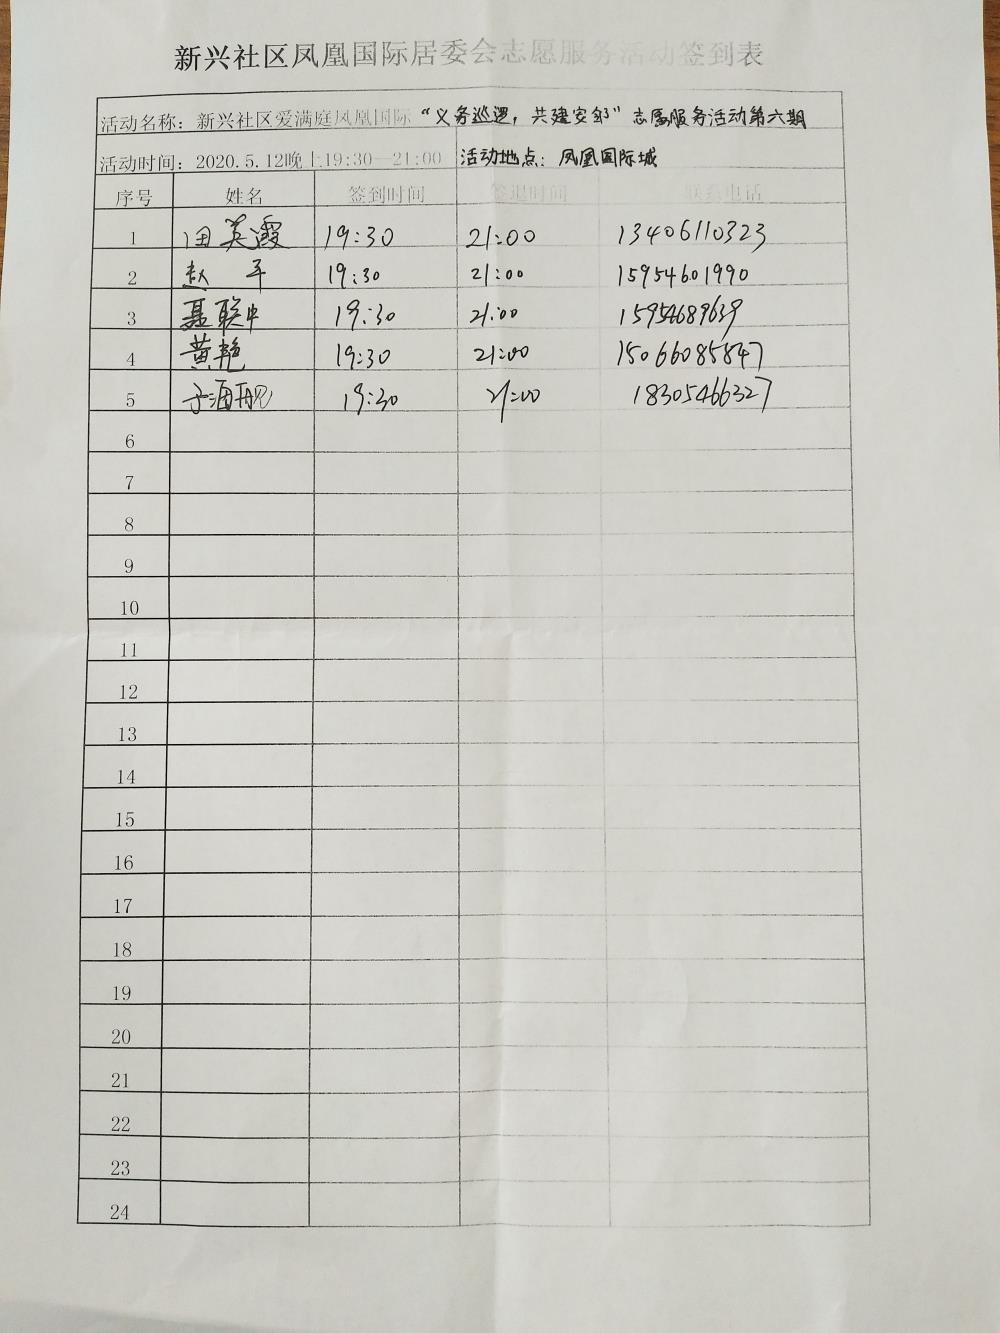 新兴社区凤凰国际居委会志愿服务活动签到表
活动名称：新兴社区爱满庭凤凰国际“义务巡逻，共建安邻”志愿服务活动第六期
活动时间：2020.5.12晚上19:30—21:00 活动地点：凤凰国际城
序号 姓名 签到时间 签退时间 联系电话
1 田英霞 19:30 21:00 13406110323
2 赵平 19:30 21:00 15954601990
3 聂联中 19:30 21:00 15954689639
4 黄艳 19:30 21:00 15066085847
5 19:30 21:00 18305466327
6
7
8
9
10
11
12
13
14
15
16
17
18
19
20
21
22
23
24